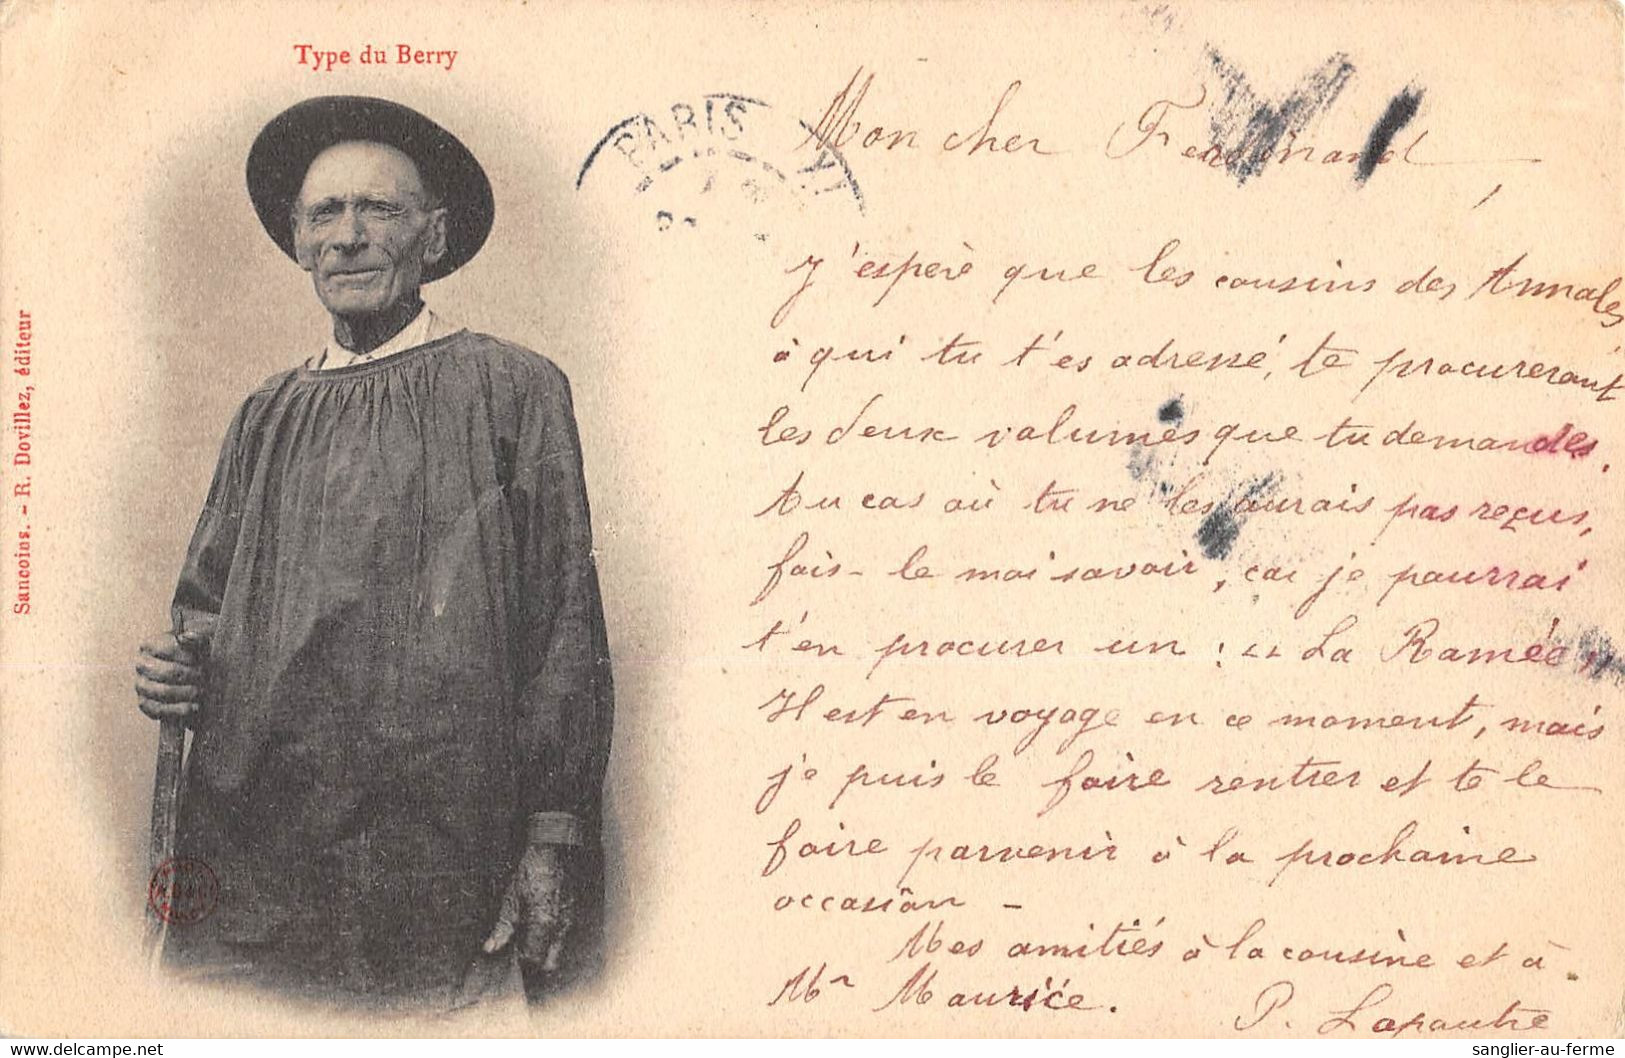 Type du Berry
Sancoins. - R. Dovillez, éditeur
PARIS XI
Mon cher Ferdinand,
J'espère que les cousins des Annales
à qui tu t'es adressé, te procureront
les deux volumes que tu demandes.
Au cas où tu ne les aurais pas reçus,
fais-le moi savoir, car je pourrai
t'en procurer un : "La Ramée"
Il est en voyage en ce moment, mais
je puis le faire rentrer et te le
faire parvenir à la prochaine
occasion -
Mes amitiés à la cousine et à
Mr Maurice.
P. Lapautre
sanglier-au-ferme